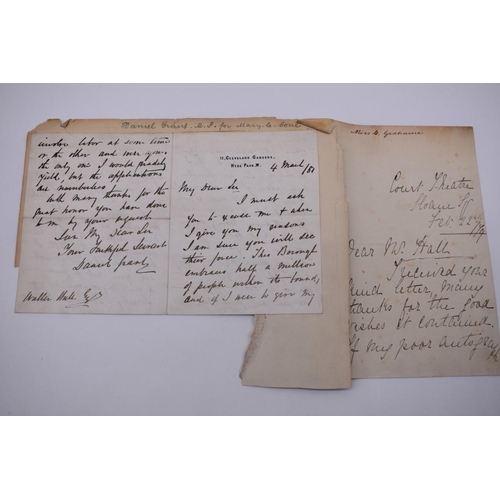 Daniel Grant. M.P. for Mary-le-bone
involve later at some time
or the other and were yours
the only one I would gladly
yield, but the applications
are numberless
With many thanks for the
great honor you have done
to me by your request
I am My Dear Sir
Your Faithful Servant
Daniel Grant
Walter Hall Esq
12, CLEVELAND GARDENS,
HYDE PARK. W.
4 March/80
My Dear Sir
I must ask
you to excuse me & when
I give you my reasons
I am sure you will see
their force. This Borough
embraces half a million
of people within its bounds,
and if I were to give my
Miss M. Grahame
Court Theatre
Sloane Sq
Feb. 22nd
Dear Mr. Hall
I received your
kind letter, many
thanks for the good
wishes it contained
If my poor autograph